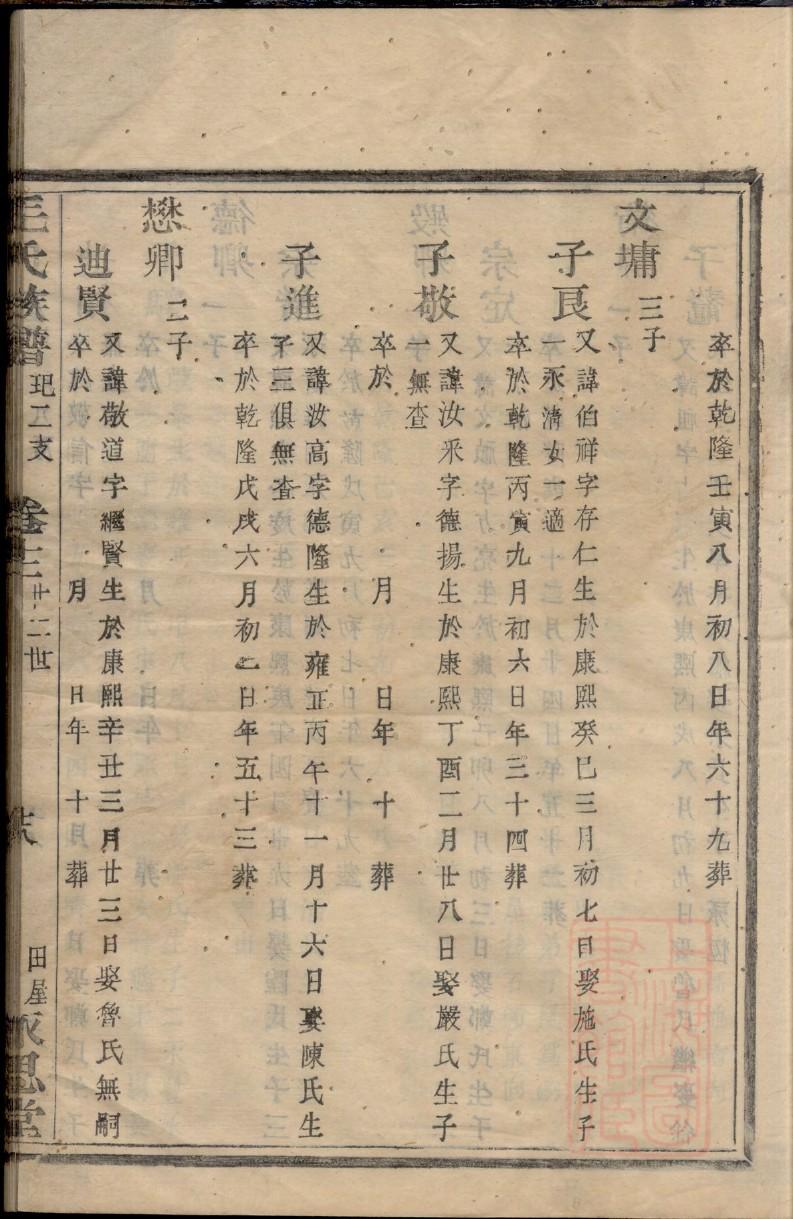 卒於乾隆壬寅八月初八日年六十九葬
文墉 三子
子良 又諱伯祥字存仁生於康熙癸巳三月初七日娶施氏生子
一永清女一適
卒於乾隆丙寅九月初六日年三十四葬
子敬 又諱汝釆字德揚生於康熙丁酉二月廿八日娶嚴氏生子
一無查
卒於 月 日年 十 葬
子進 又諱汝高字德隆生於雍正丙午十一月十六日娶陳氏生
子三俱無查
卒於乾隆戊戌六月初二日年五十三葬
懋卿 二子
迪賢 又諱敬道字繼賢生於康熙辛丑三月廿三日娶魯氏無嗣
卒於 月 日年 十月葬
王氏族譜 玘二支 卷 廿二世 田屋 永思堂